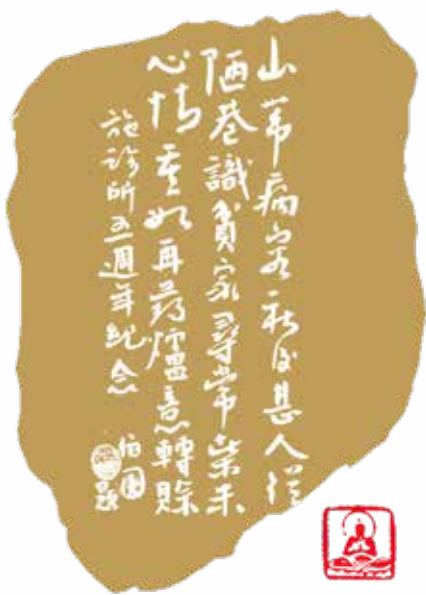 山帶病容秋後甚人從
陋巷識貧家尋常柴米
心情重如再药爐意轉賒
施診所五週年紀念
伯圓
題